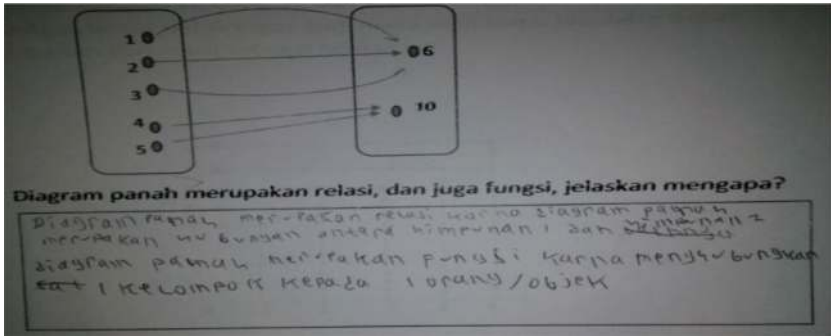 1
2
3
4
5
6
10
Diagram panah merupakan relasi, dan juga fungsi, jelaskan mengapa?
Diagram panah merupakan relasi karna diagram panah
merupakan hubungan antara himpunan 1 dan himpunan 2
diagram panah merupakan fungsi karna menghubungkan
1 kelompok kepada 1 orang/objek